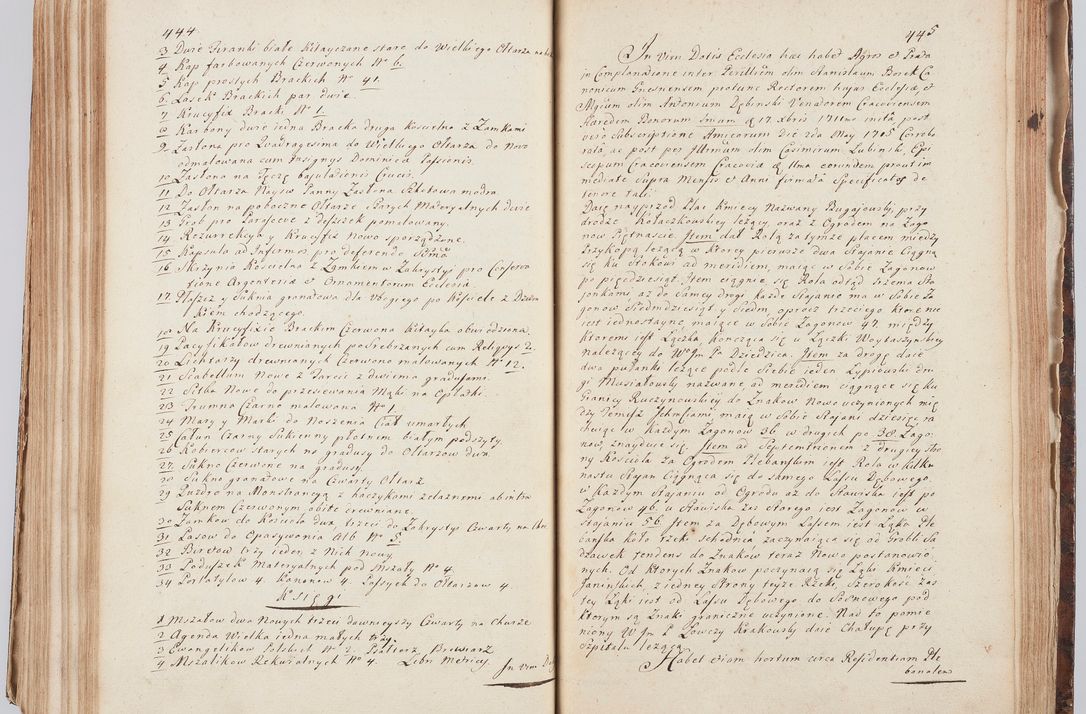 444.
3 Dwie Firanki białe Kitayczane stare do Wielkiego Ołtarza
4 Kap farbowanych Czerwonych No 6.
5 Kap prostych Brackich No 41.
6 Lasek Brackich par dwie.
7 Krucyfix Bracki No 1.
8 Karbony dwie iedna Bracka druga Kościelna z Zamkami
9 Zasłona pro Quadragesima do Wielkiego Ołtarza do Nowo
odmalowana cum Insignys Dominicæ Passionis.
10 Zasłona na Tęczę bajulationis Crucis.
11 Do Ołtarza Nayśw Panny Zasłona Szkotowa modra.
12 Zasłon na poboczne Ołtarze starych Materyalnych dwie
13 Grob pro Parasceve z deszczek pomalowany.
14 Rezurrekcya y Krucyfix Nowo sporządzone.
15 Kapsuła ad Infirmos pro deferendo Ssmo
16 Skrzynia Kościelna z Zamkiem w Zakrystyi pro Conserva
tione Argenteria et Ornamentorum Ecclesiæ.
17 Płaszcz y Suknia granatowa dla Ubogiego po Kościele z Dzwon
kiem chodzącego.
18 Na Krucyfixie Brackim Czerwona Kitayka obwiedziona.
19 Pacyfikałow drewnianych posrebrzanych cum Reliquys 2.
20 Lichtarzy drewnianych Czerwono malowanych No 12.
21 Scabellum Nowe z Tarcic z dwiema gradusami.
22 Sitko Nowe do przesiewania Mąki na Opłatki.
23 Trunna Czarno malowana No 1.
24 Mary y Marki do Noszenia Ciał umarłych
25 Całun Czarny Sukienny płotnem białym podszyty.
26 Kobiercow starych na gradusy do Ołtarzow dwa.
27 Sukno Czerwone na gradusy.
28 Sukno granatowe na Czwarty Ołtarz.
29 Puzdro na Monstrancyą z haczykami żelaznemi ab intra
Suknem Czerwonym obite drewniane.
30 Zamkow do Kościoła dwa, trzeci do Zakrystyi Czwarty na Chor
31 Pasow do Opasywania Alb No 5.
32 Biretow trzy ieden z Nich Nowy
33 Poduszek Materyalnych pod Mszały No 4.
34 Portatylow 4. Kanonow 4. Passyek do Ołtarzow 4
Księgi
1 Mszałow dwa Nowych trzeci dawnieyszy Czwarty na Chorze
2 Agenda Wielka iedna małych trzy.
3 Ewangelikow Polskich No 2. Psałterz, Brewiarz
4 Mszalikow Rekwialnych No 4. Libri Metrices
In vim Do
445
In vim Dotis Ecclesia hæc habet Agros et Prata
in Complanatione inter Perillrem olim Stanislaum Borek Ca
nonicum Gnesnensem protunc Rectorem hujus Ecclesiæ, et
Mgcum olim Antonium Dębinski Venatorem Cracoviensem
Hæredem Bonorum 17 Xbris 1711mo inita post
vero Subscriptione Amicorum Die 2da May 1715 Corrobo
rata, ac post per Illrmum olim Casimirum Łubinski, Epi
scopum Cracoviensem Cracoviæ d. Una eorundem prout im
mediate supra Mensis et Anni firmata Specificatos de
tenore tali
Daię nayprzod Plac Kmiecy Nazwany Bugajowsky, przy
drodze Kołaczkowskiey leżący oraz z Ogrodem na Zago
now Piętnaście. Item dał Rolą za tymże placem między
Przykopą leżącą w Ktorey pierwsze dwa Stajanie Ciągną
się ku Stokow ad meridiem, maiąc w Sobie Zagonow
po pięcdziesiąt. Item ciągnie się Rola odtąd trzema Sta
jonkami, aż do Samey drogi, każde Stajanie ma w Sobie Za
gonow Siedmdziesiąt y Siedm, oprocz trzeciego ktore nie
iest iednostayne maiące w Sobie Zagonow 47. między
ktoremi iest Łączka, kończąca się u Łączki Woytaszynskiey
należącey do Wo Jm Pa Dziedzica. Item za drogę daie
dwa pułanki leżące podle Siebie ieden Łypiowski dru
gi Musiałowski nazwane, ad meridiem ciągnące się ku
Granicy Ruczynowskiey do Znakow Nowo uczynionych mię
dzy Temisz Jchmściami maią w Sobie Stajani dziesięc, ra
chuiąc w Każdym Zagonow 36. w drugich po 38. Zago
now, znayduie się. Item ad Septentrionem z drugiey stro
ny Kościoła za Ogrodem Plebańskim iest Rola w kilku
nastu Stajan Ciągnąca się do samego Lassu Dębowego.
w Każdym Stajaniu od Ogroda aż do Stawiska iest po
Zagonow 46. u Stawiska zas Starego iest Zagonow w
Stajaniu 56. Item za Dębowym Lassem iest Łąka Ple
bańska koło rzeki Schodnia zaczynaiąca się od Grobli Sa
dzawek tendens do Znakow teraz Nowo postanowio
nych. Od Ktorych Znakow poczynaią się Łąki Kmieci
Janinskich, z iedney Strony teyże Rzeki, Szerokość zas
tey Łąki iest od Lassu Dębowego do Sosnowego pod
Ktorym są Znaki graniczne uczynione. Nad to pomie
niony W Jm P Łowczy Krakowski daie Chałupę przy
Szpitalu leżącą
Habet etiam hortum circa Residentiam Ple
banalem